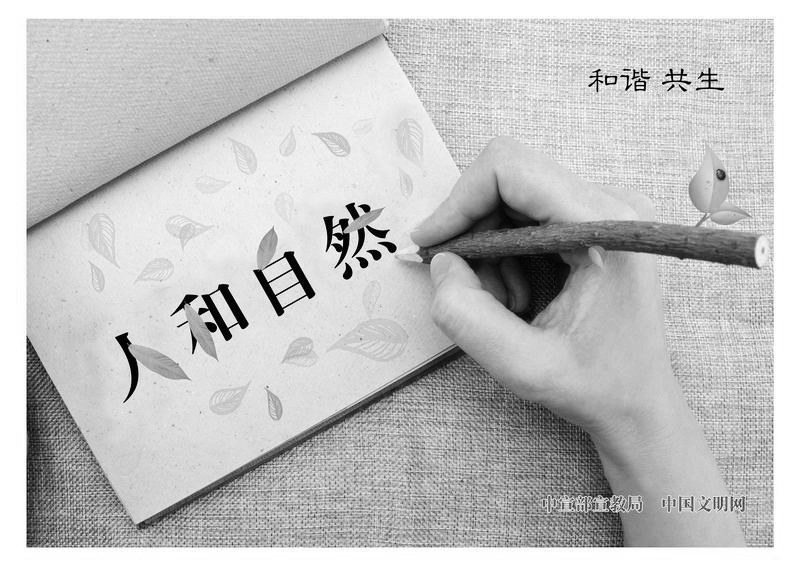 和谐 共生
人和自然
中宣部宣教局 中国文明网